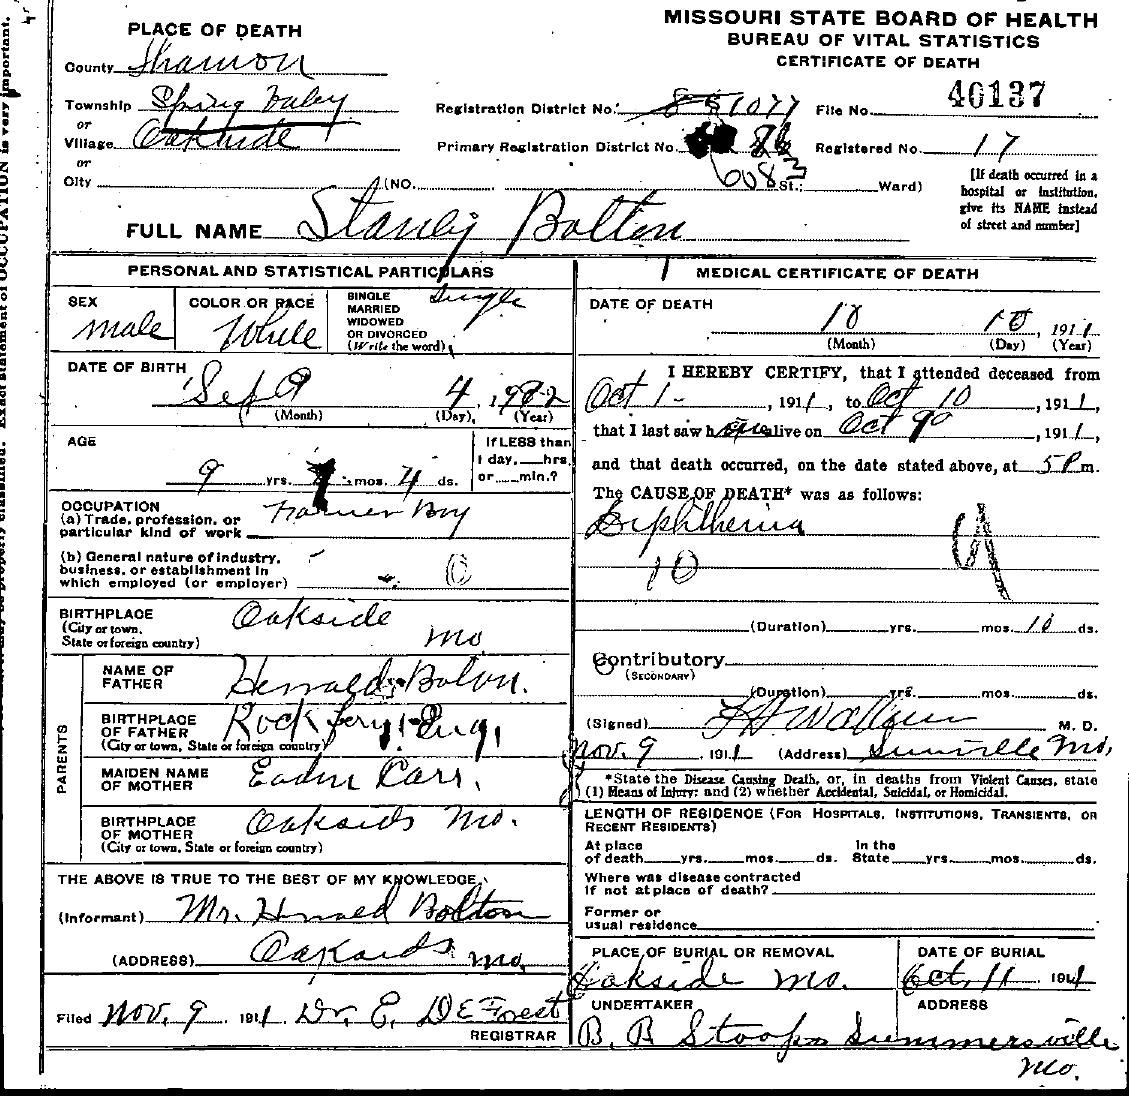 MISSOURI STATE BOARD OF HEALTH
BUREAU OF VITAL STATISTICS
CERTIFICATE OF DEATH
PLACE OF DEATH
County Shannon
Township Spring Valey
or
Village Oakside
or
City (NO. St.; Ward)
Registration District No. 1077 File No. 40137
Primary Registration District No. 6083 Registered No. 17
[If death occurred in a hospital or institution, give its NAME instead of street and number]
FULL NAME Stanley Bolton
PERSONAL AND STATISTICAL PARTICULARS
SEX
male
COLOR OR RACE
White
SINGLE
MARRIED
WIDOWED
OR DIVORCED
(Write the word)
Single
DATE OF BIRTH
Sep 4, 1902
(Month) (Day) (Year)
AGE
9 yrs. 1 mos. 4 ds.
If LESS than
1 day, hrs.
or min.?
OCCUPATION
(a) Trade, profession, or
particular kind of work Farmer Boy
(b) General nature of industry,
business, or establishment in
which employed (or employer)
BIRTHPLACE
(City or town,
State or foreign country)
Oakside
Mo
PARENTS
NAME OF
FATHER
Bolton.
BIRTHPLACE
OF FATHER
(City or town, State or foreign country)
Eng,
MAIDEN NAME
OF MOTHER
Carr.
BIRTHPLACE
OF MOTHER
(City or town, State or foreign country)
Oakside Mo.
THE ABOVE IS TRUE TO THE BEST OF MY KNOWLEDGE
(Informant) Mr. Bolton
(ADDRESS) Oakside Mo.
Filed Nov. 9 1911. Dr. E. DeForest
REGISTRAR
MEDICAL CERTIFICATE OF DEATH
DATE OF DEATH
10 10, 1911
(Month) (Day) (Year)
I HEREBY CERTIFY, that I attended deceased from
Oct 1- , 1911, to Oct 10 , 1911,
that I last saw h alive on Oct 9 , 1911,
and that death occurred, on the date stated above, at 5 P m.
The CAUSE OF DEATH* was as follows:
Diphtheria
10
(Duration) yrs. mos. 10 ds.
Contributory
(SECONDARY)
(Duration) yrs. mos. ds.
(Signed) M. D.
Nov. 9 , 1911 (Address) Mo,
*State the Disease Causing Death, or, in deaths from Violent Causes, state
(1) Means of Injury; and (2) whether Accidental, Suicidal, or Homicidal.
LENGTH OF RESIDENCE (FOR HOSPITALS, INSTITUTIONS, TRANSIENTS, OR
RECENT RESIDENTS)
At place In the
of death yrs. mos. ds. State yrs. mos. ds.
Where was disease contracted
If not at place of death?
Former or
usual residence
PLACE OF BURIAL OR REMOVAL
Oakside Mo.
DATE OF BURIAL
Oct. 11 1911
UNDERTAKER
B. B Stoops
ADDRESS
Summersville
Mo.